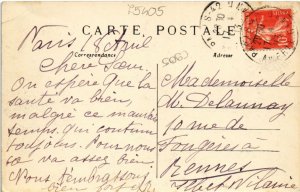 75405
CARTE POSTALE
Correspondance
Adresse
Paris 8 Avril
Chère Sœur,
On espère que la
santé va bien,
malgré ce mauvais
temps, qui continu
toujours. Pour nous
to va assez bien.
Nous t'embrassons
bien fort
Mademoiselle
M. Delaunay
10 rue de
Fougères
Rennes
Ille et Vilaine